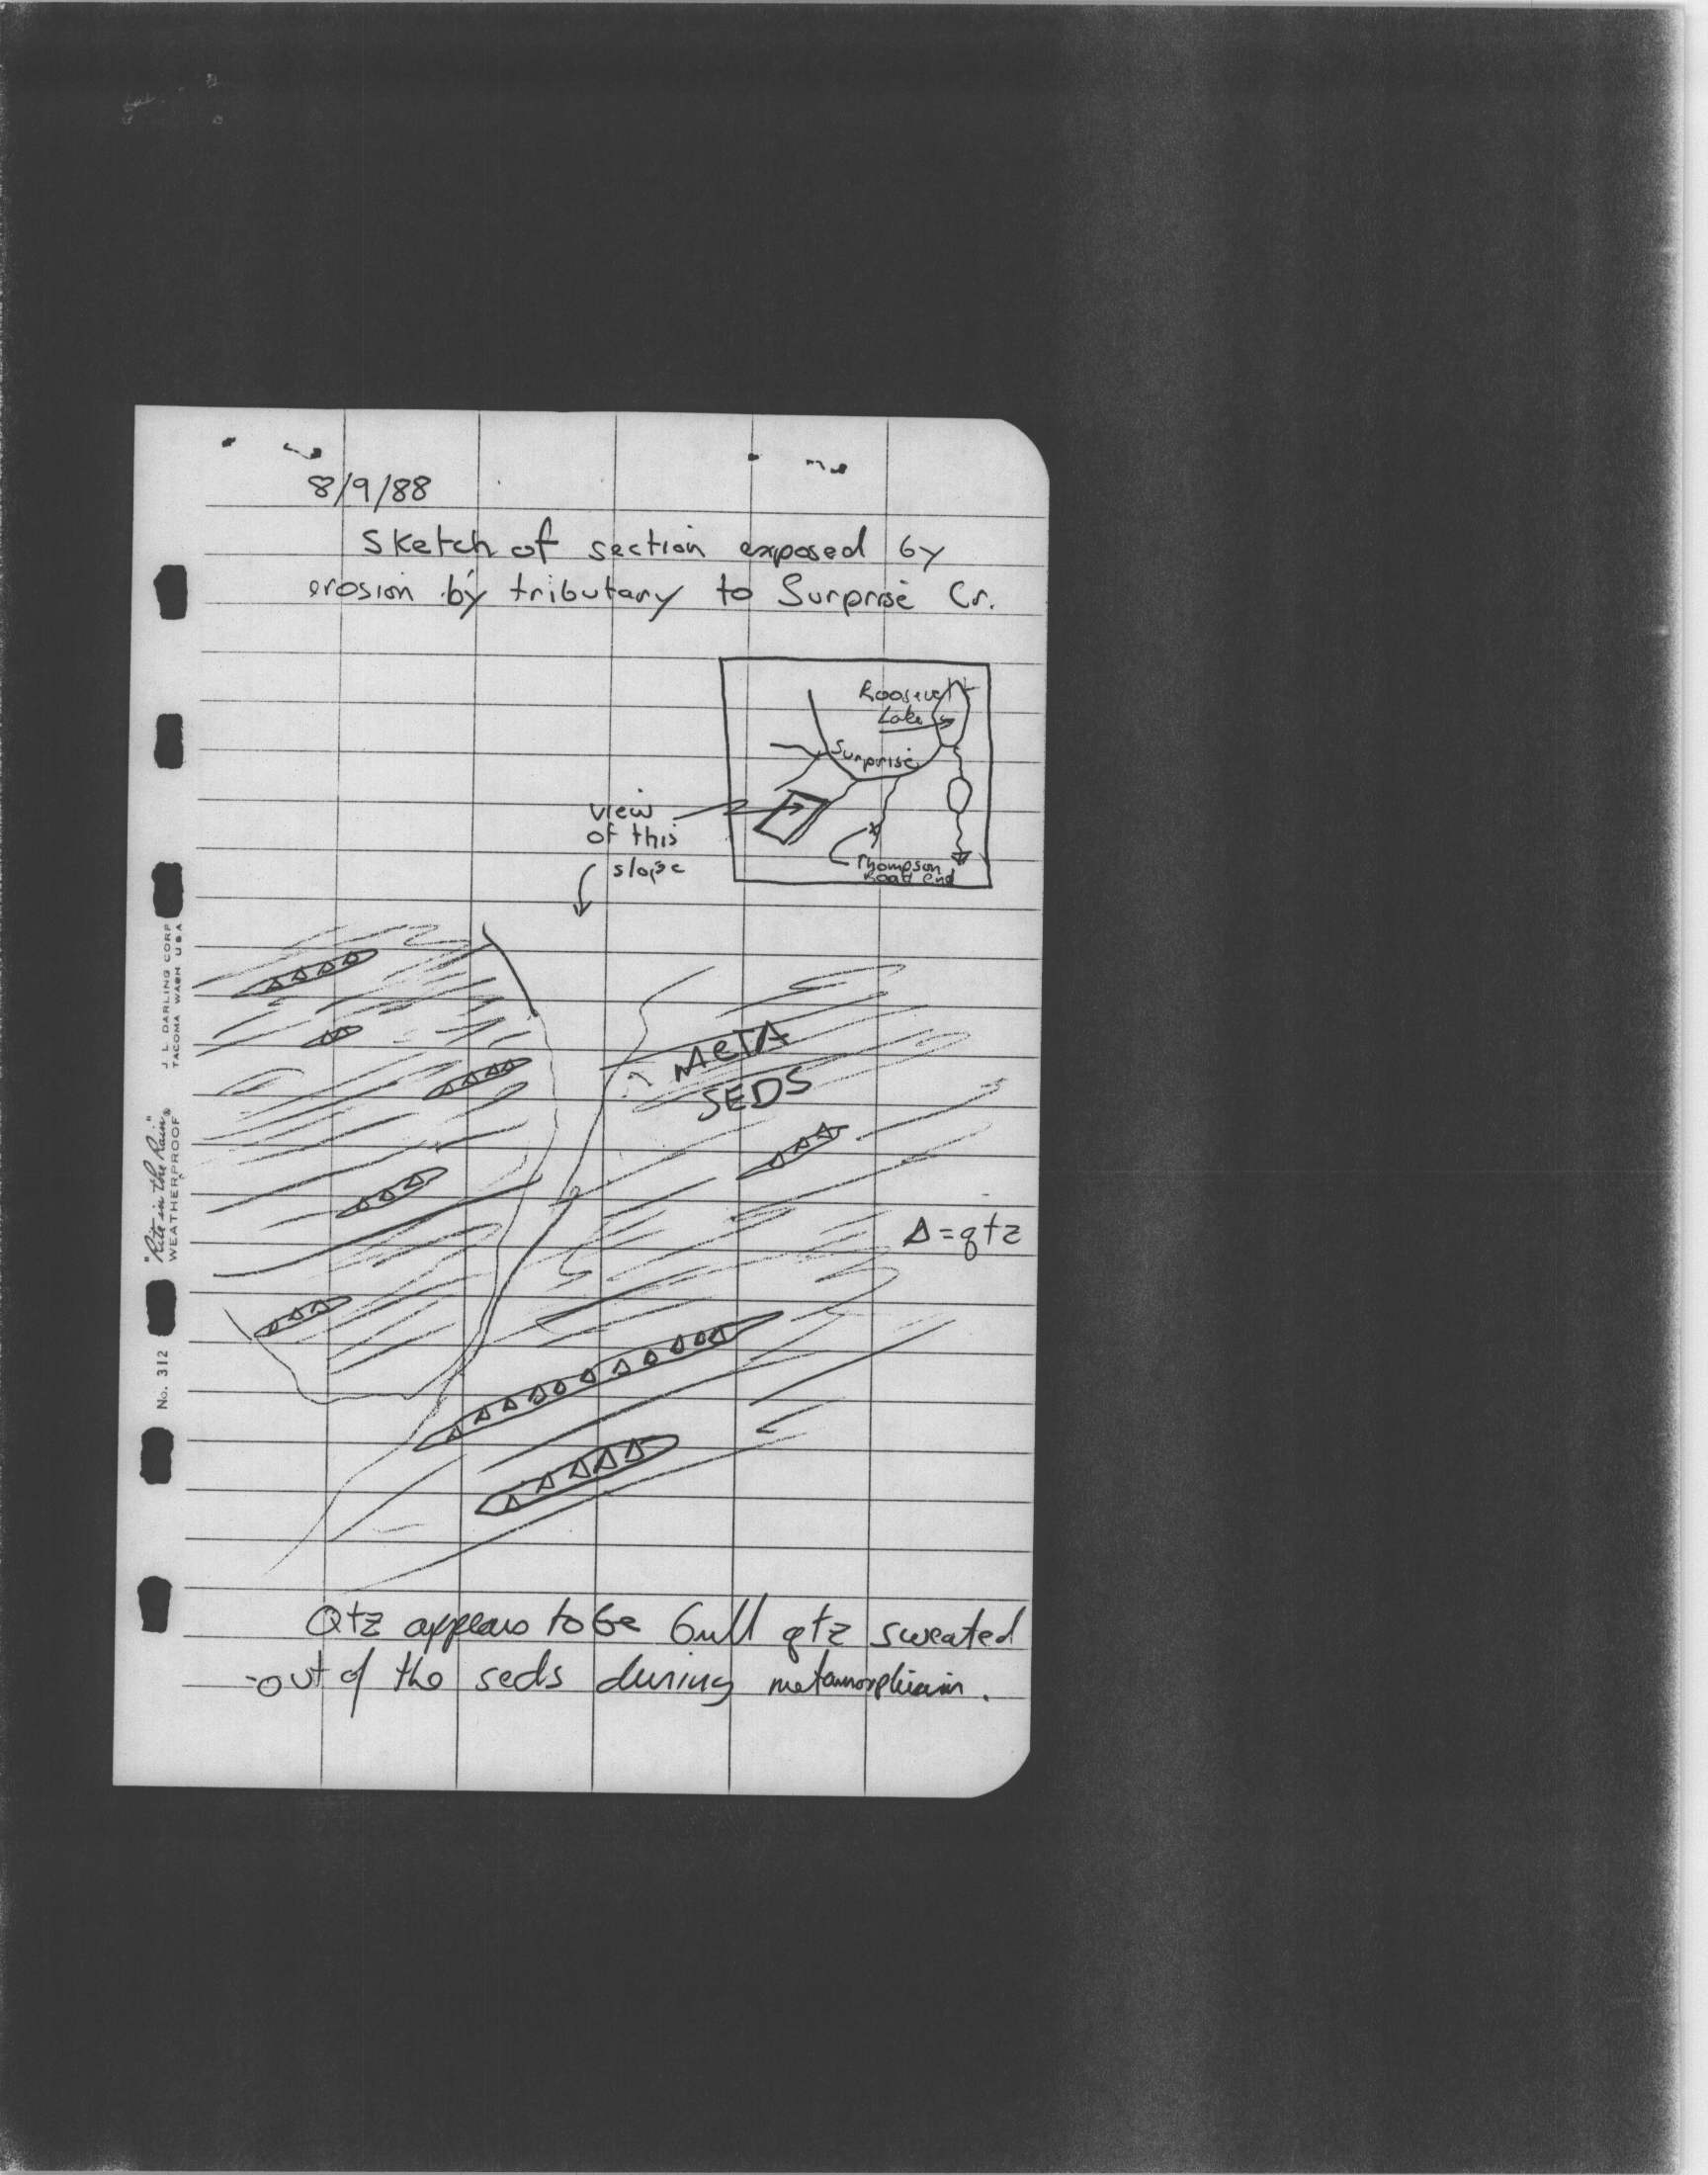 8/9/88
Sketch of section exposed by
erosion by tributary to Surprise Cr.
Roosevelt
Lake
Surprise
view
of this
slope
Thompson
Road end
META
SEDS
Δ=qtz
Qtz appears to be bull qtz sweated
out of the seds during metamorphism.
J. L. DARLING CORP
TACOMA WASH USA
"Rite in the Rain"
WEATHERPROOF
No. 312